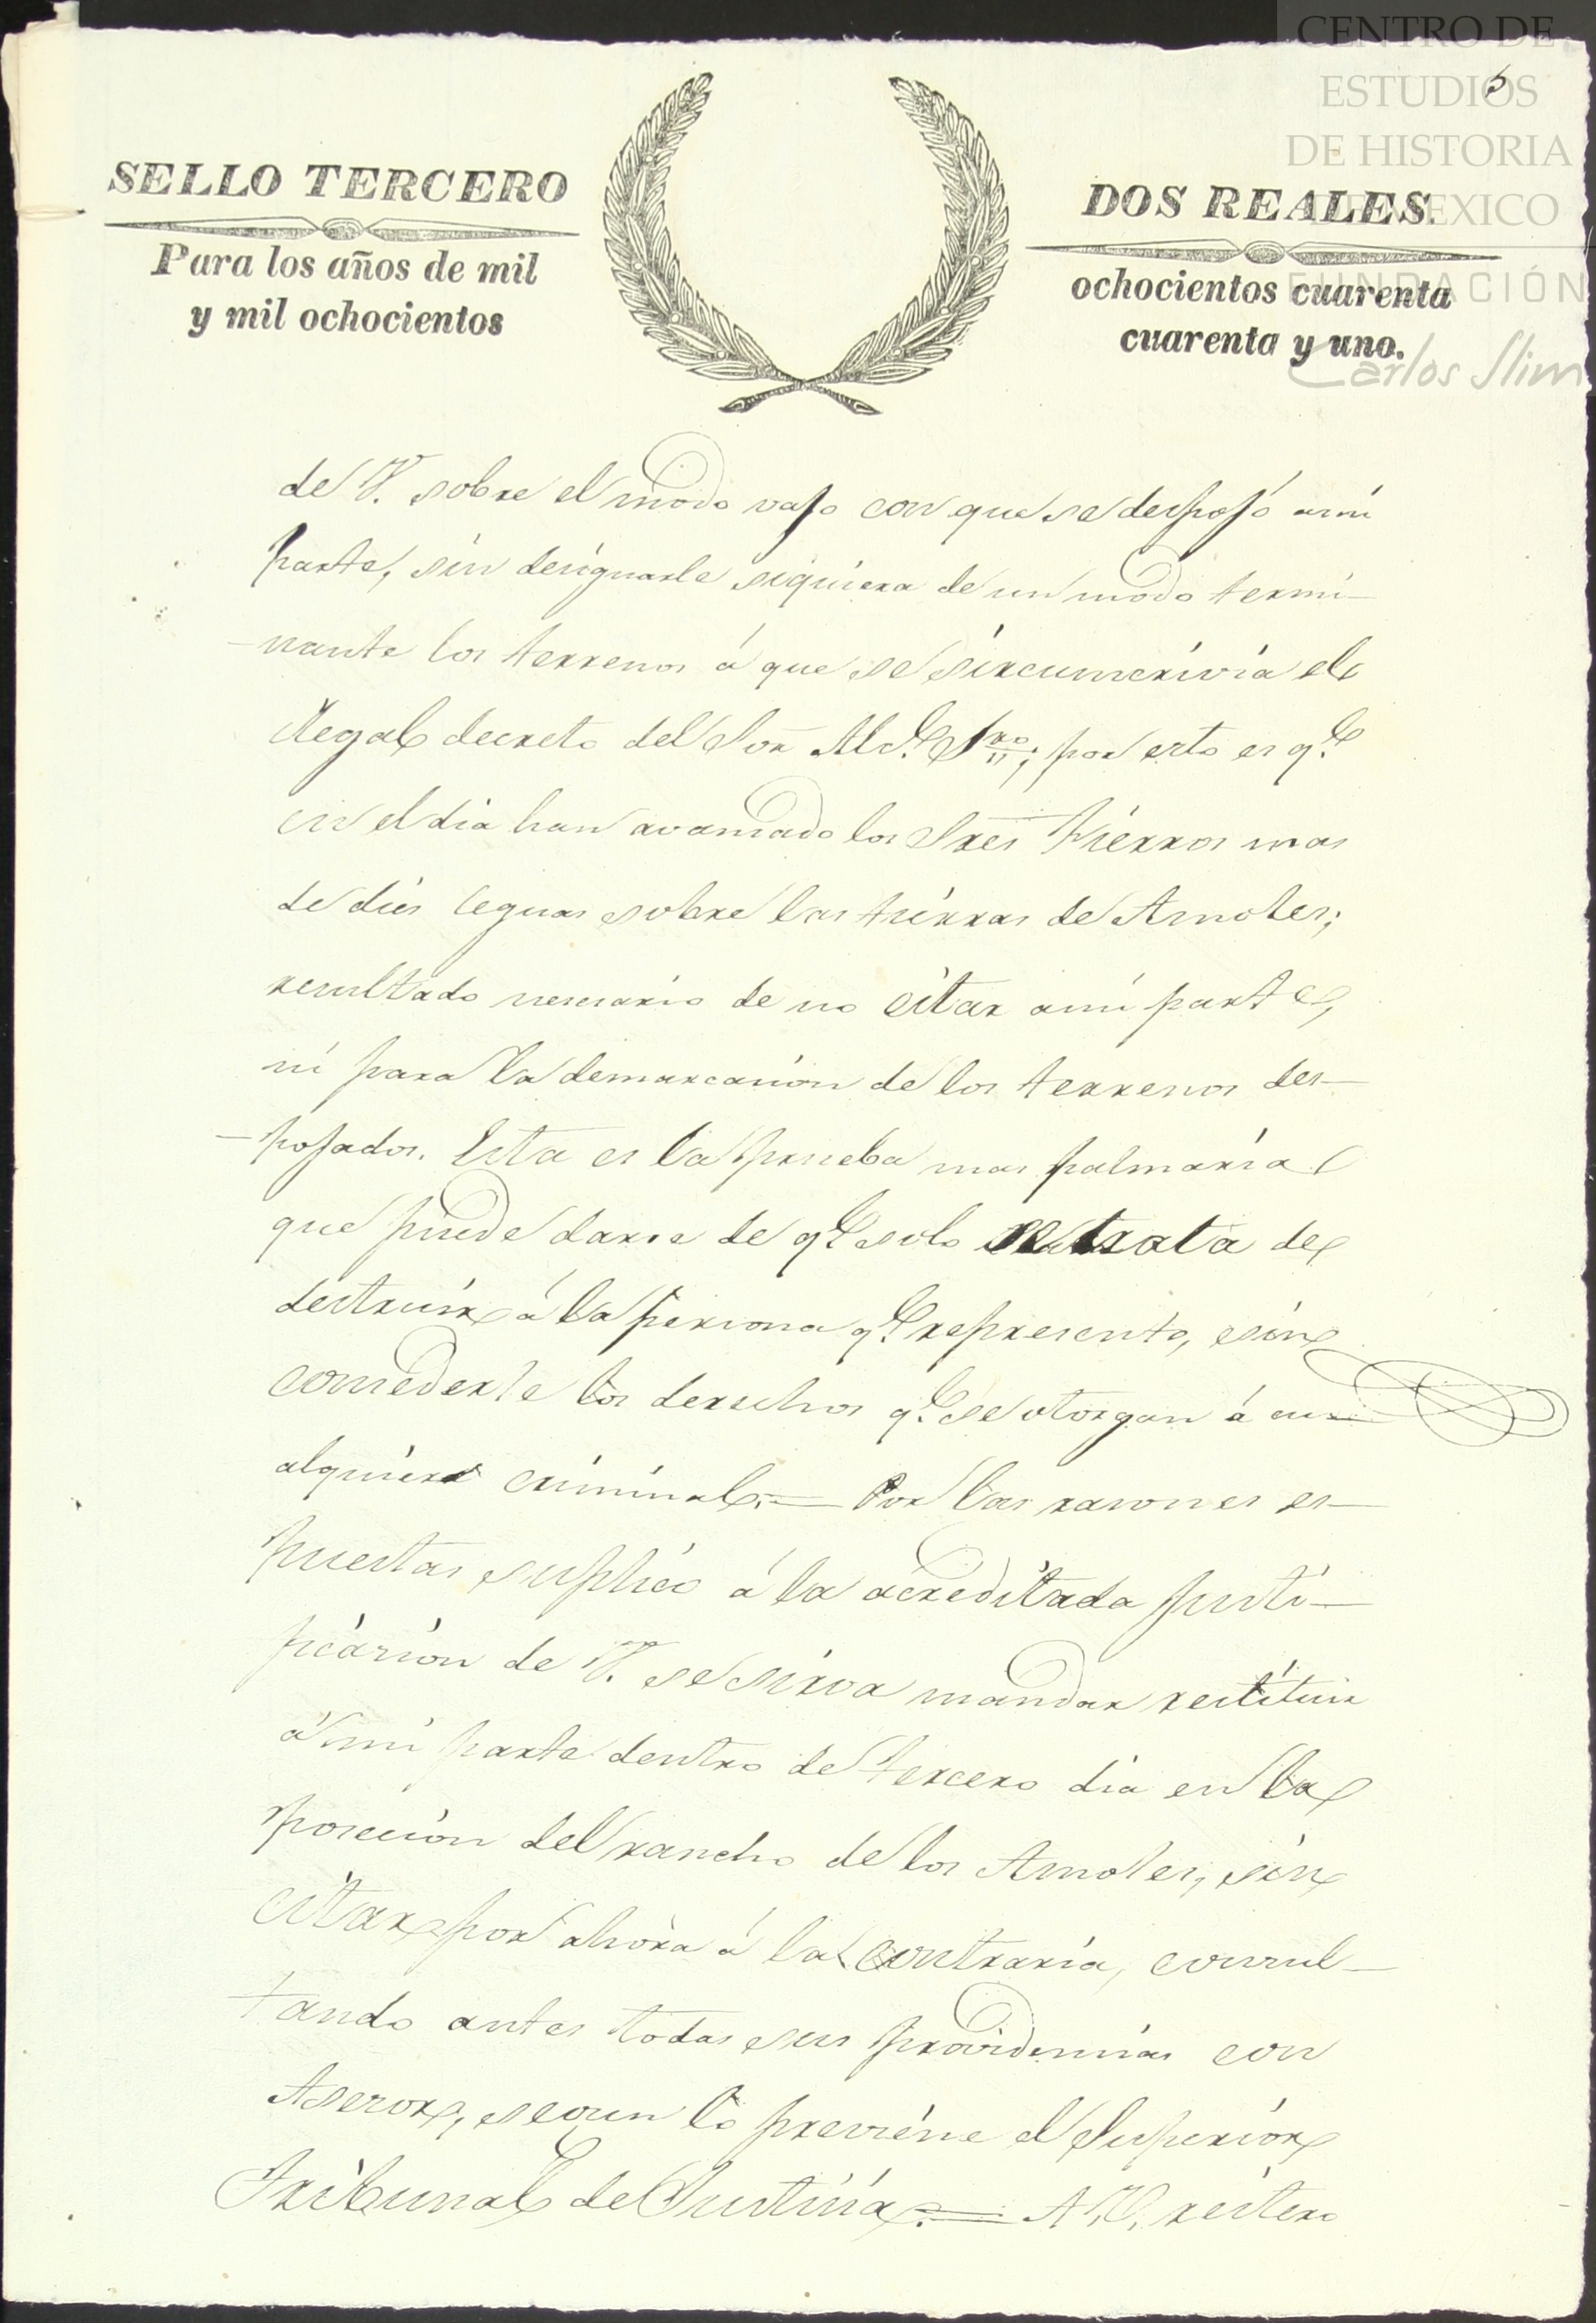 CENTRO DE
ESTUDIOS
DE HISTORIA
DE MEXICO
FUNDACIÓN
Carlos Slim
5
SELLO TERCERO
DOS REALES.
Para los años de mil
ochocientos cuarenta
y mil ochocientos
cuarenta y uno.
de V. sobre el modo vajo con que se despojó a mi
parte, sin designarle siquiera de un modo termi-
-nante los terrenos á que se sircunscrivia el
ilegal decreto del Sor Alc.e 1ro; por esto es q.e
en el dia han avansado los Sres Fierros mas
de dies leguas sobre las tierras de Amoles;
resultado nesesario de no citar a mi parte,
ni para la demarcasion de los terrenos des-
-pojados. Esta es la prueba mas palmaria
que puede darse de q.e solo se trata de
destruir á la persona q.e represento, sin
consederle los derechos q.e se otorgan á cu-
alquiera criminal.= Por las rasones es-
puestas suplico á la acreditada justi-
ficasion de V. se sirva mandar restituir
á mi parte dentro de tercero dia en la
posecion del rancho de los Amoles, sin
citar por ahora á la contraria, consul-
tando antes todas sus providensias con
Asesor, segun lo previene el Superior
Tribunal de Justisia.= A V. reitero